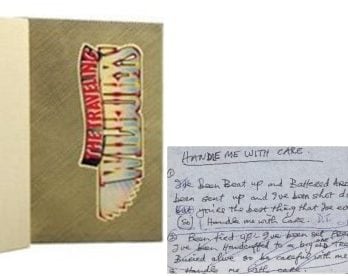 THE TRAVELING
WILBURYS
HANDLE ME WITH CARE.
①
I've Been Beat up and Battered Aro
been sent up and I've been shot d
you're the best thing that I've eo
(So) Handle me with Care.
② Been fed up - I've been
I've been Handcuffed to a big
Buried alive so be careful with me
Handle me with care.